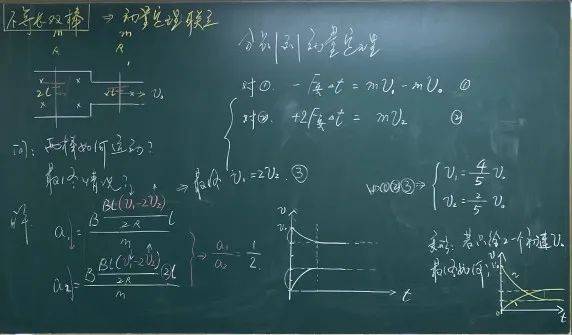 不等长双棒 ⇒ 动量定理联立
m m
R R
2l l → v₀
问: 两棒如何运动?
最终情况?
解
a₁ = B \frac{Bl(v₁-2v₂)}{2R} l / m
a₂ = B \frac{Bl(v₁-2v₂)}{2R} 2l / m
⇒ \frac{a₁}{a₂} = \frac{1}{2}
⇒ 最终 v₁ = 2v₂ ③
分别 动量定理
对①. -F安Δt = mv₁ - mv₀ ①
对②. +2F安Δt = mv₂ ②
①②③ ⇒ { v₁ = \frac{4}{5} v₀
v₂ = \frac{2}{5} v₀
v
v₀
t
若只给2一个初速v₀
最终如何?
v
v₀
t